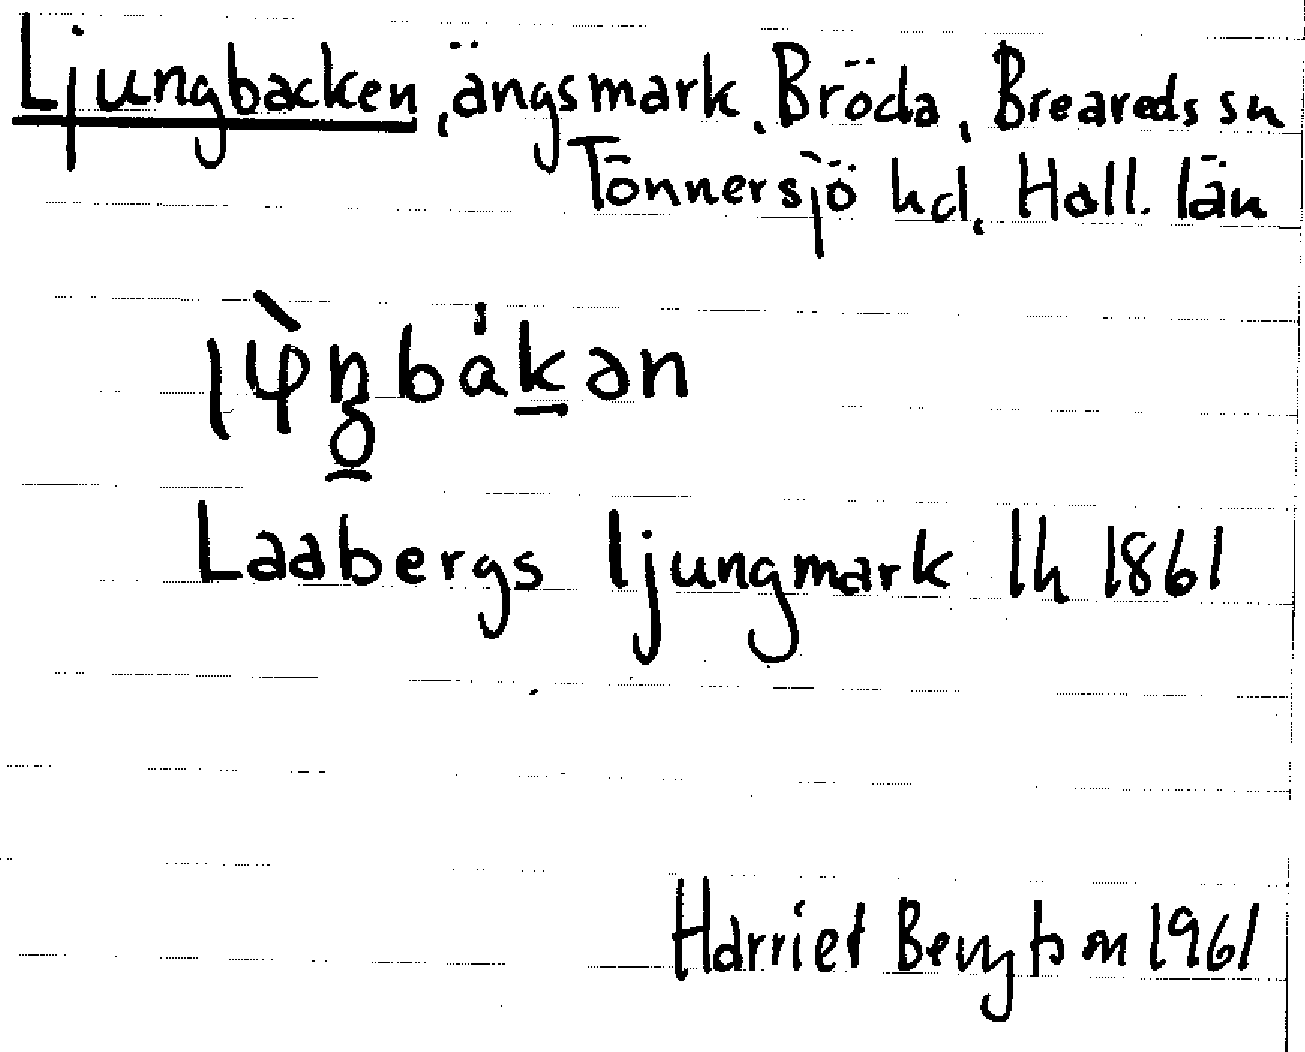 Ljungbacken, ängsmark, Bröda, Breareds sn
Tönnersjö hd, Hall. län
Laabergs ljungmark lh 1861
Harriet Bengtson 1961